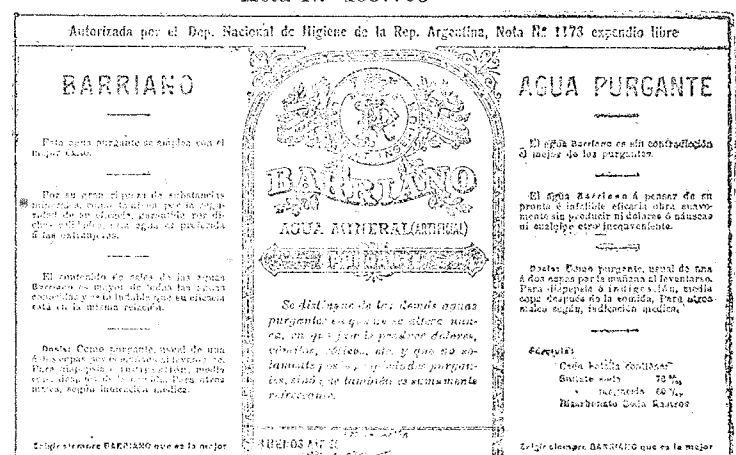 Autorizada por el Dep. Nacional de Higiene de la Rep. Argentina, Nota Nº 1173 expendio libre
BARRIANO
Esta agua purgante se emplea con el
mejor éxito.
Por su gran riqueza de substancias
minerales, como también por la
de su eficacia, garantida por
agua es preferida
á las extranjeras.
El contenido de sales de las aguas
Barriano es mayor de todas las aguas
conocidas y es indudable que su eficacia
está en la misma relación.
Dosis: Como purgante, usual de una
á dos copas por la mañana al levantarse.
Para dispepsia ó indigestión, media
copa después de la comida. Para otros
males, según indicación médica.
Exigir siempre BARRIANO que es la mejor
BARRIANO
AGUA MINERAL (ARTIFICIAL)
PURGANTE
Se distingue de las demás aguas
purgantes en que no se altera nun-
ca, en que jamás produce dolores,
vómitos, cólicos, etc. y que no so-
lamente posee propiedades purgan-
tes, sinó que también es sumamente
refrescante.
BUENOS AIRES
AGUA PURGANTE
El agua Barriano es sin contradicción
el mejor de los purgantes.
El agua Barriano á pensar de su
pronta é infalible eficacia obra suave-
mente sin producir ni dolores ó náuseas
ni cualquier otro inconveniente.
Dosis: Como purgante, usual de una
á dos copas por la mañana al levantarse.
Para dispepsia ó indigestión, media
copa después de la comida. Para otros
males según, indicación médica.
Fórmula:
Cada botilla contiene:
Sulfato soda
" magnesia
Bicarbonato Soda Rastros
Exigir siempre BARRIANO que es la mejor